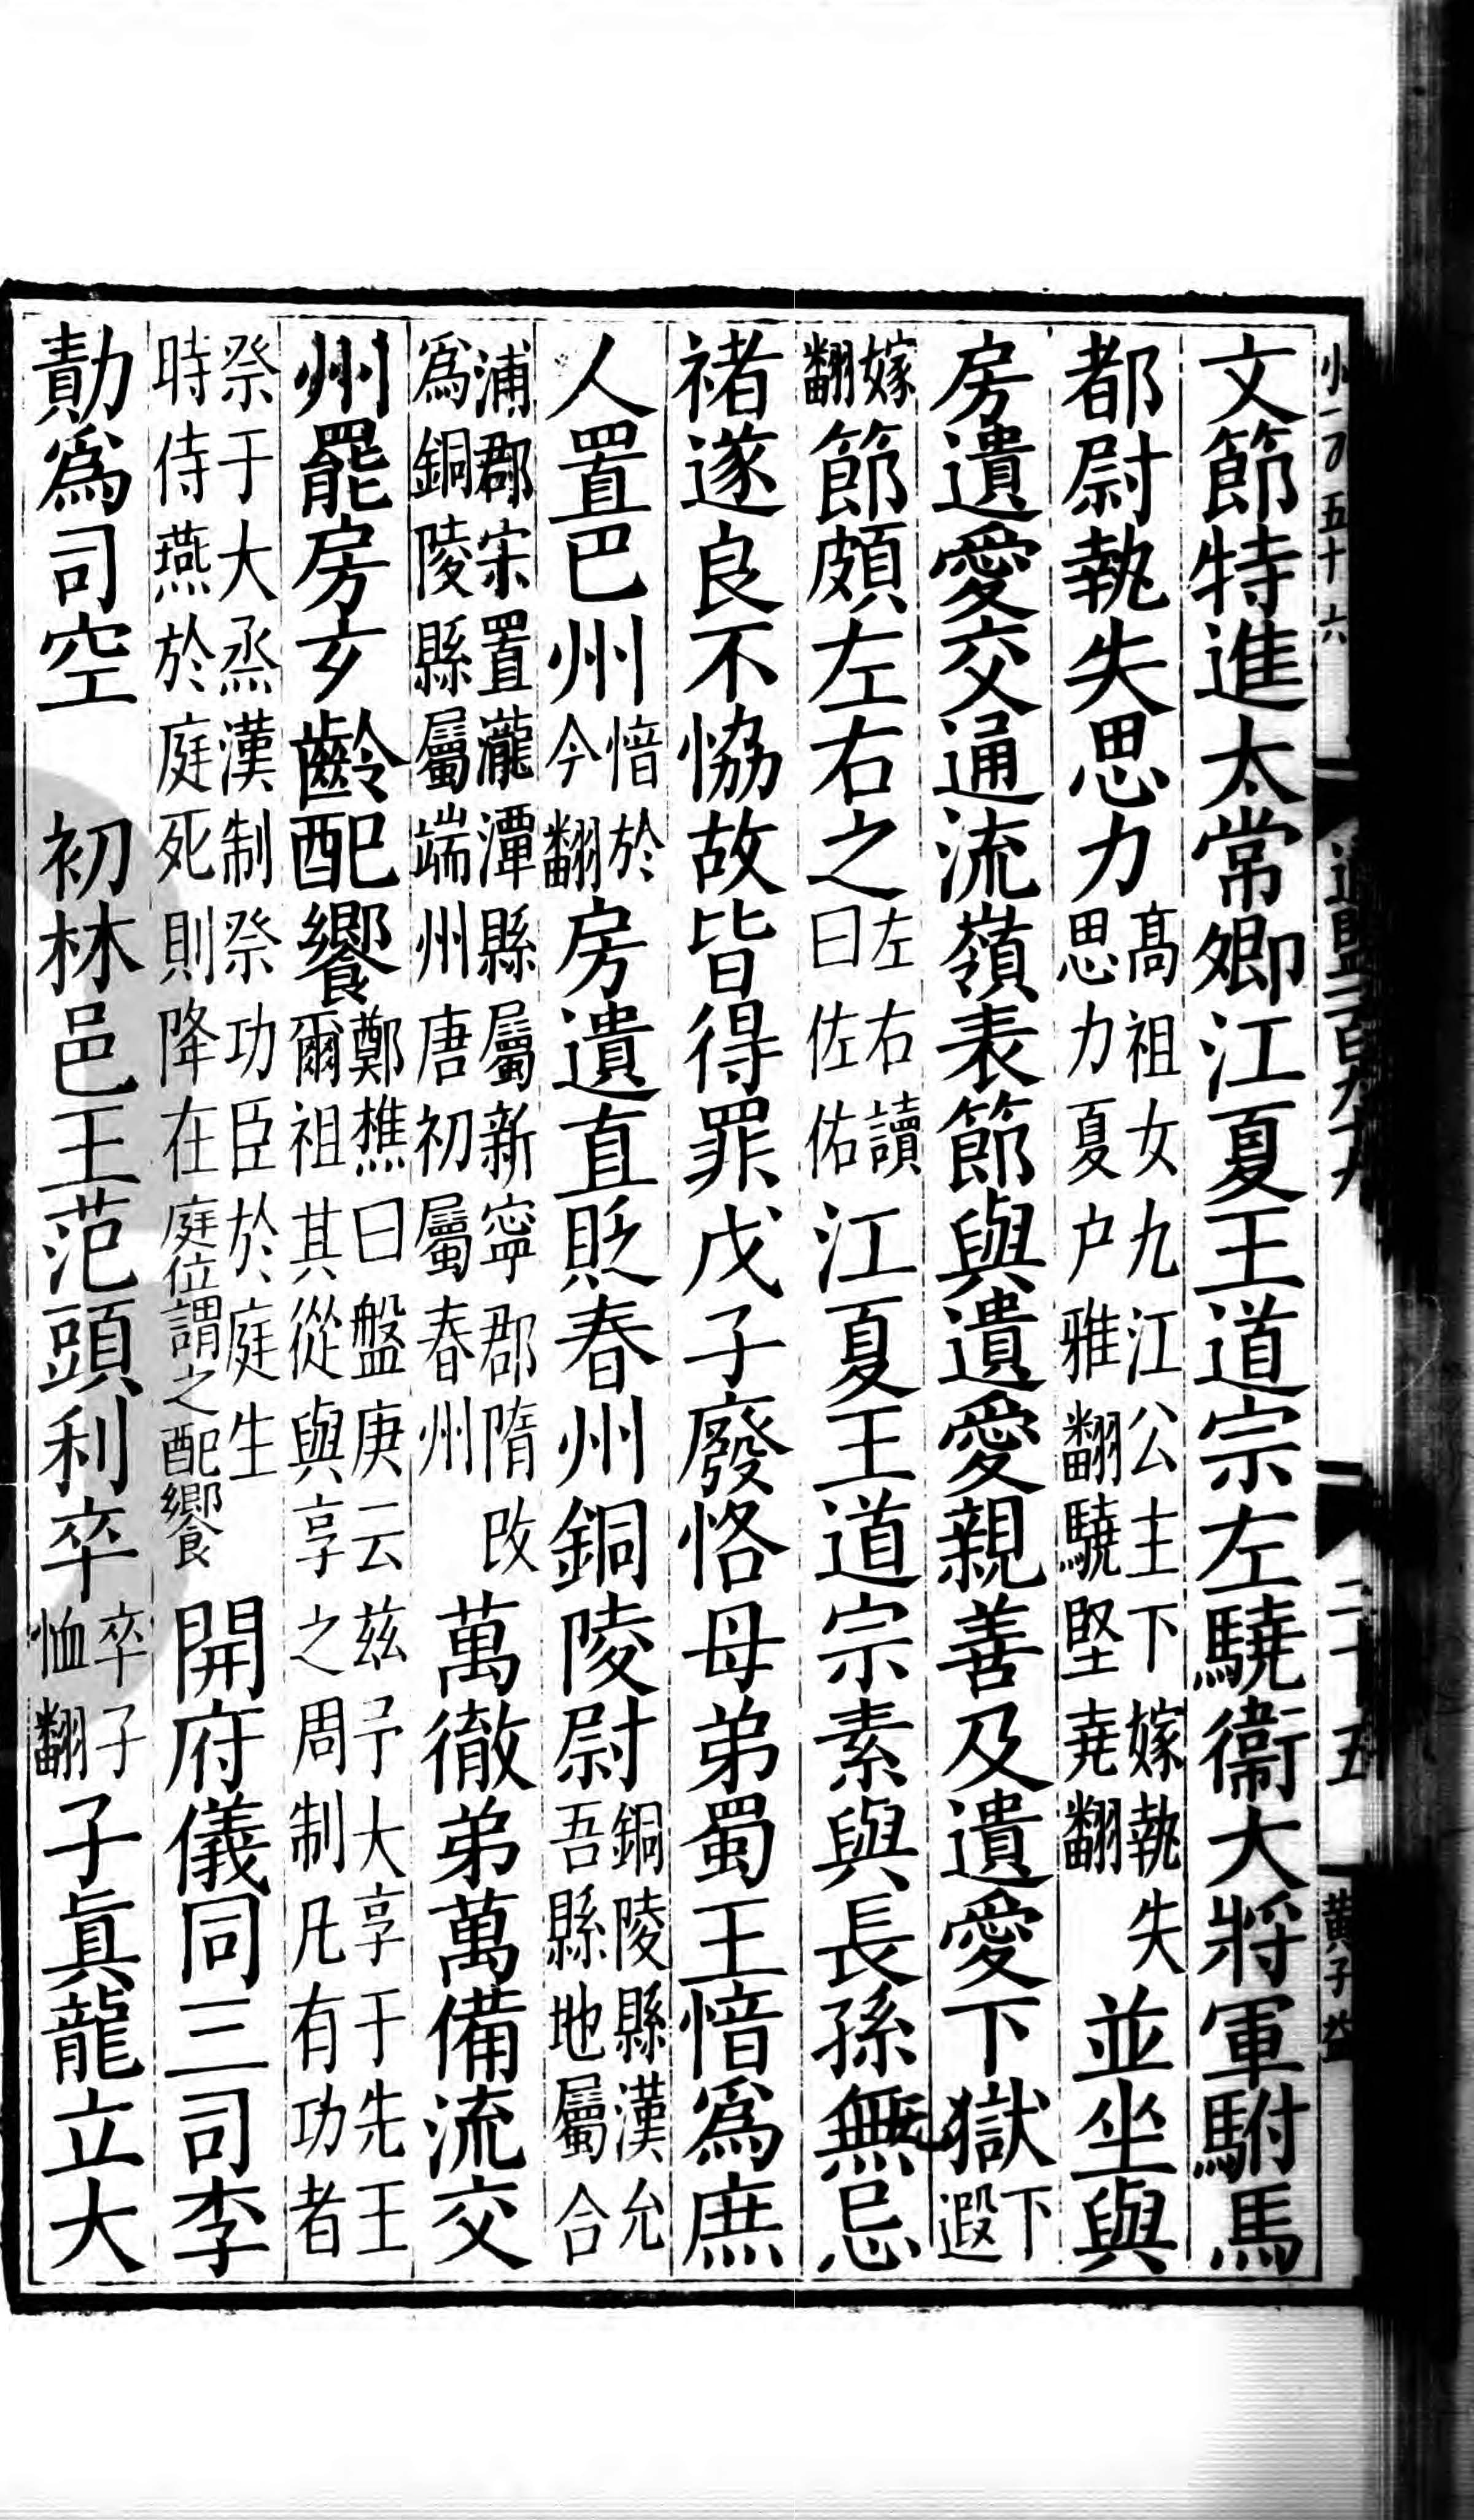 文節特進太常卿江夏王道宗左驍衞大將軍駙馬
都尉執失思力高祖女九江公主下嫁執失思力夏户雅翻驍堅堯翻並坐與
房遺愛交通流嶺表節與遺愛親善及遺愛下獄下遐
嫁翻節頗左右之左右讀曰佐佑江夏王道宗素與長孫無忌
褚遂良不恊故皆得罪戊子廢恪母弟蜀王愔爲庶
人置巴州愔於今翻房遺直貶春州銅陵尉銅陵縣漢允吾縣地屬合
浦郡宋置瀧潭縣屬新寧郡隋改爲銅陵縣屬端州唐初屬春州萬徹弟萬備流交
州罷房玄齡配饗鄭樵曰盤庚云兹予大享于先王爾祖其從與享之周制凡有功者
祭于大烝漢制祭功臣於庭生時侍燕於庭死則降在庭位謂之配饗開府儀同三司李
勣爲司空 初林邑王范頭利卒卒子恤翻子眞龍立大
二十五
黄子益